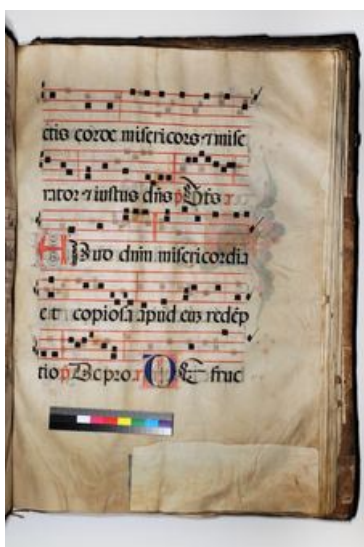 ctis corde misericors ⁊ mise
rator ⁊ iustus dñs p
APud dnm̄ misericordia
et copiosa apud euz redēp
tio p De pro. r De fruc